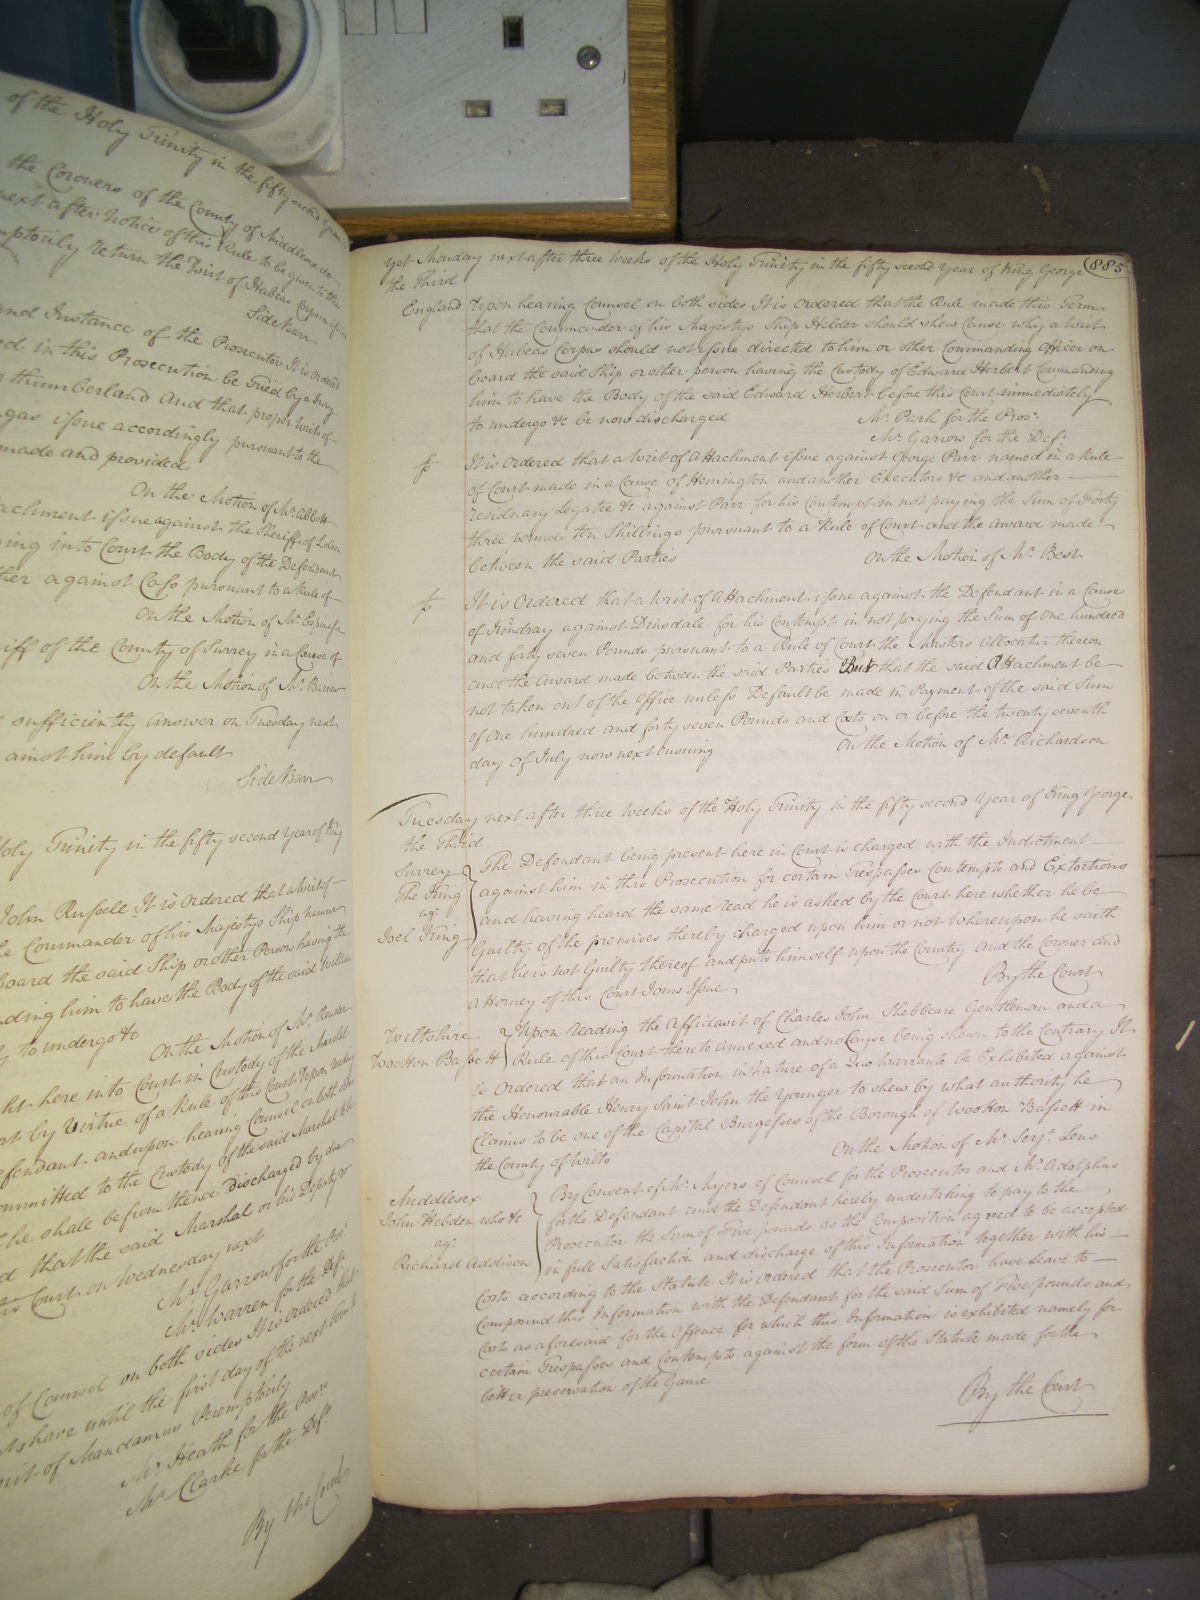 of the Holy Trinity in the fifty second Year
the Coroners of the County of Middlesex do
next after Notice of this Rule to be given to them
return the Writ of Habeas Corpora
Side Barr
and Instance of the Prosecutor It is ordered
in this Prosecution be Tried by a Jury
And that proper Writs of
issue accordingly pursuant to the
made and provided
On the Motion of Mr. Abbott
issue against the Sheriffs of London
into Court the Body of the Defendant
against Cass pursuant to a Rule of
On the Motion of Mr. Espinasse
of the County of Surrey in a Cause of
On the Motion of Mr. Barrow
sufficiently answer on Tuesday next
against him by default
Side Barr
Holy Trinity in the fifty second Year of King
John Russell It is Ordered that a Writ of
Commander of his Majestys Ship
board the said Ship or other Person having the
him to have the Body of the said William
to undergo &c
On the Motion of Mr. Reader
here into Court in Custody of the Marshal
by Virtue of a Rule of this Court Upon reading
and upon hearing Counsel on both sides
committed to the Custody of the said Marshal to be
he shall be from thence discharged by due
that the said Marshal or his Deputy do
Court on Wednesday next
Mr. Garrow for the
Mr. Warren for the Def.
of Counsel on both sides It is ordered that
have until the first day of the next Term to
Writ of Mandamus Peremptorily
Mr. Heath for the Pros.r
Mr. Clarke for the Def.t
By the Court
Yet Monday next after three Weeks of the Holy Trinity in the fifty second Year of King George 885
the Third
England Upon hearing Counsel on both sides It is ordered that the Rule made this Term
that the Commander of his Majestys Ship Helder should shew Cause why a Writ
of Habeas Corpus should not issue directed to him or other Commanding Officer on
board the said Ship or other person having the Custody of Edward Herbert Commanding
him to have the Body of the said Edward Herbert before this Court immediately
to undergo &c be now discharged Mr. Park for the Pros.r
Mr. Garrow for the Def.t
It is Ordered that a Writ of Attachment issue against George Parr named in a Rule
of Court made in a Cause of Hemington and another Executors &c and another
residuary Legatee &c against Parr for his Contempt in not paying the Sum of Forty
three pounds ten Shillings pursuant to a Rule of Court and the award made
between the said Parties On the Motion of Mr. Best
It is Ordered that a Writ of Attachment issue against the Defendant in a Cause
of Kindray against Dinsdale for his Contempt in not paying the Sum of One hundred
and forty seven Pounds pursuant to a Rule of Court the Masters Allocatur thereon
and the Award made between the said Parties But that the said Attachment be
not taken out of the Office unless Default be made in Payment of the said Sum
of One hundred and forty seven Pounds and Costs on or before the twenty seventh
day of July now next ensuing On the Motion of Mr. Richardson
Tuesday next after three Weeks of the Holy Trinity in the fifty second Year of King George
the Third
Surrey
The King
ag.t
Joel King
The Defendant being present here in Court is charged with the Indictment
against him in this Prosecution for certain Trespasses Contempts and Extortions
and having heard the same read he is asked by the Court here whether he be
Guilty of the premises thereby charged upon him or not Whereupon he saith
that he is not Guilty thereof and puts himself upon the Country And the Coroner and
Attorney of this Court Joins Issue By the Court
Wiltshire
Wootton Bassett
Upon reading the Affidavit of Charles John Shebbeare Gentleman and a
Rule of this Court thereto annexed and no Cause being shewn to the Contrary It
is Ordered that an Information in nature of a Quo Warranto be Exhibited against
the Honourable Henry Saint John the Younger to shew by what authority he
Claims to be one of the Capital Burgesses of the Borough of Wootton Bassett in
the County of Wilts On the Motion of Mr. Serj.t Lens
Middlesex
John Hebden who &c
ag.t
Richard Addison
By Consent of Mr. Myers of Counsel for the Prosecutor and Mr. Adolphus
for the Defendant and the Defendant hereby undertaking to pay to the
Prosecutor the Sum of Five pounds as the Composition agreed to be accepted
in full Satisfaction and discharge of this Information together with his
Costs according to the Statute It is Ordered that the Prosecutor have Leave to
Compound this Information with the Defendant for the said Sum of Five pounds and
Costs as aforesaid for the Offence for which this Information is exhibited namely for
certain Trespasses and Contempts against the form of the Statute made for the
better preservation of the Game
By the Court